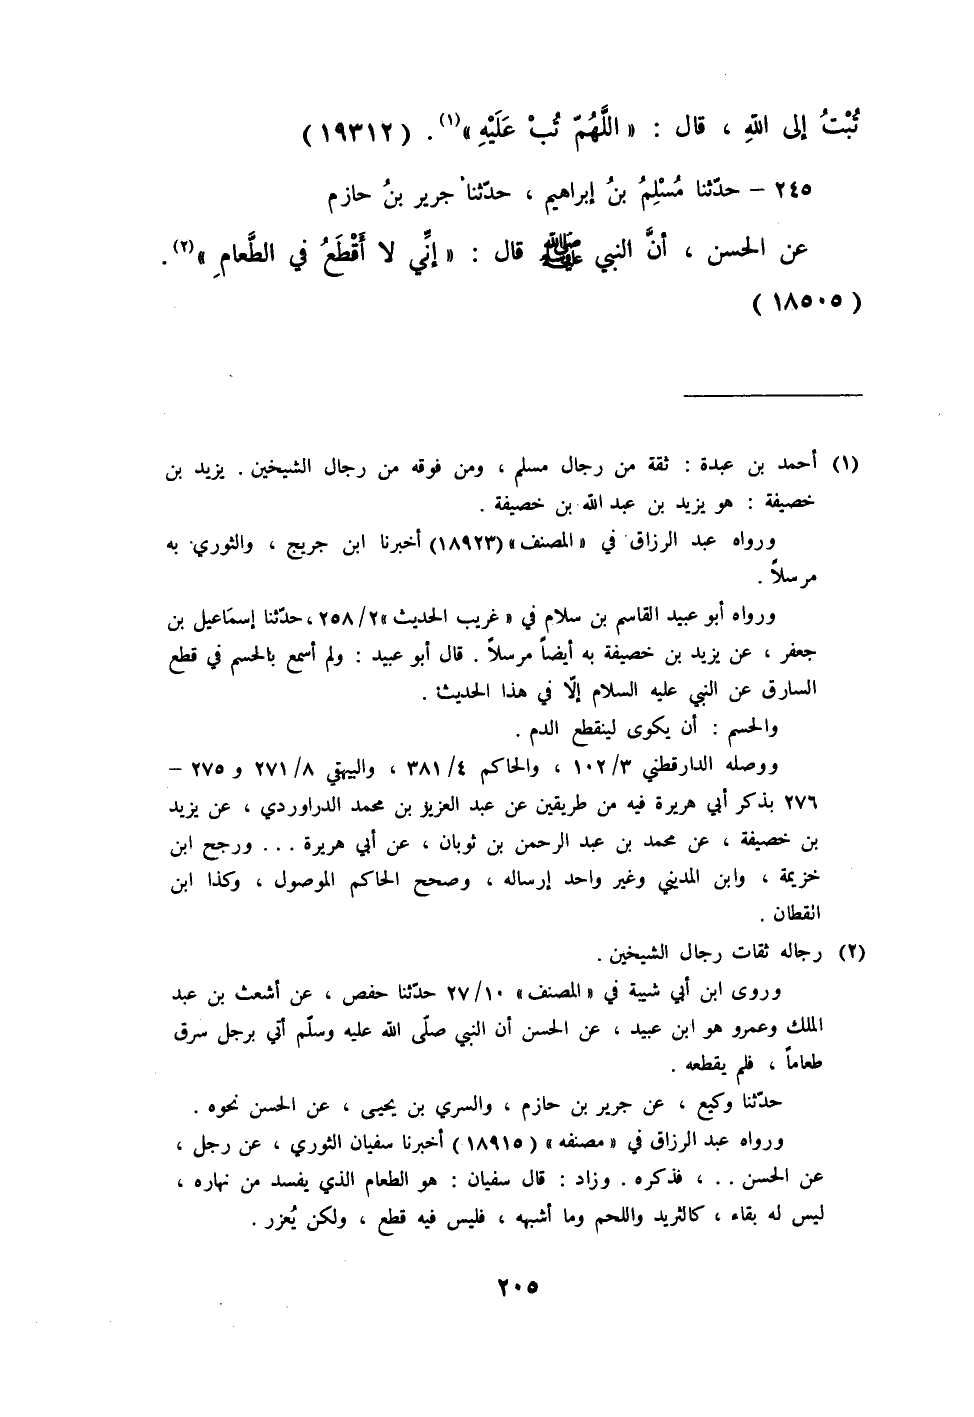 تُبْتُ إلى اللّهِ ، قال : « اللَّهُمّ تُبْ عَلَيْهِ »(١) . (١٩٣١٢)
٢٤٥ – حدّثنا مُسْلِمُ بنُ إبراهيم ، حدّثنا جرير بنُ حازم
عن الحسن ، أنَّ النبي ﷺ قال : « إنِّي لا أَقْطَعُ في الطَّعامِ »(٢) .
(١٨٥٠٥)
(١) أحمد بن عبدة : ثقة من رجال مسلم ، ومن فوقه من رجال الشيخين . يزيد بن
خصيفة : هو يزيد بن عبد الله بن خصيفة .
ورواه عبد الرزاق في « المصنف » (١٨٩٢٣) أخبرنا ابن جريج ، والثوري به
مرسلاً .
ورواه أبو عبيد القاسم بن سلام في « غريب الحديث » ٢٥٨/٢ ، حدّثنا إسمَاعيل بن
جعفر ، عن يزيد بن خصيفة به أيضاً مرسلاً . قال أبو عبيد : ولم أسمع بالحسم في قطع
السارق عن النبي عليه السلام إلّا في هذا الحديث .
والحسم : أن يكوى لينقطع الدم .
ووصله الدارقطني ١٠٢/٣ ، والحاكم ٣٨١/٤ ، والبيهقي ٢٧١/٨ و ٢٧٥ –
٢٧٦ بذكر أبي هريرة فيه من طريقين عن عبد العزيز بن محمد الدراوردي ، عن يزيد
بن خصيفة ، عن محمد بن عبد الرحمن بن ثوبان ، عن أبي هريرة . . . ورجح ابن
خزيمة ، وابن المديني وغير واحد إرساله ، وصحح الحاكم الموصول ، وكذا ابن
القطان .
(٢) رجاله ثقات رجال الشيخين .
وروى ابن أبي شيبة في « المصنف » ٢٧/١٠ حدّثنا حفص ، عن أشعث بن عبد
الملك وعمرو هو ابن عبيد ، عن الحسن أن النبي صلّى الله عليه وسلّم أتي برجل سرق
طعاماً ، فلم يقطعه .
حدّثنا وكيع ، عن جرير بن حازم ، والسري بن يحيى ، عن الحسن نحوه .
ورواه عبد الرزاق في « مصنفه » (١٨٩١٥) أخبرنا سفيان الثوري ، عن رجل ،
عن الحسن . . ، فذكره . وزاد : قال سفيان : هو الطعام الذي يفسد من نهاره ،
ليس له بقاء ، كالثريد واللحم وما أشبهه ، فليس فيه قطع ، ولكن يُعزر .
٢٠٥